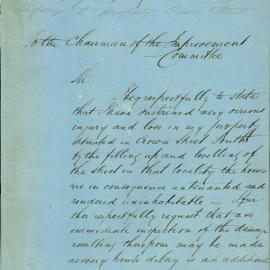 To the Chairman of the Improvement
Committee
Sir
I beg respectfully to state
that I have sustained very serious
injury and loss in my property
situated in Crown Street South
by the filling up and levelling of
the street in that locality the houses
are in consequence untenanted and
rendered uninhabitable — I fur
ther respectfully request that an
immediate inspection of the damage
resulting therefrom may be made
as every hour's delay is an additional